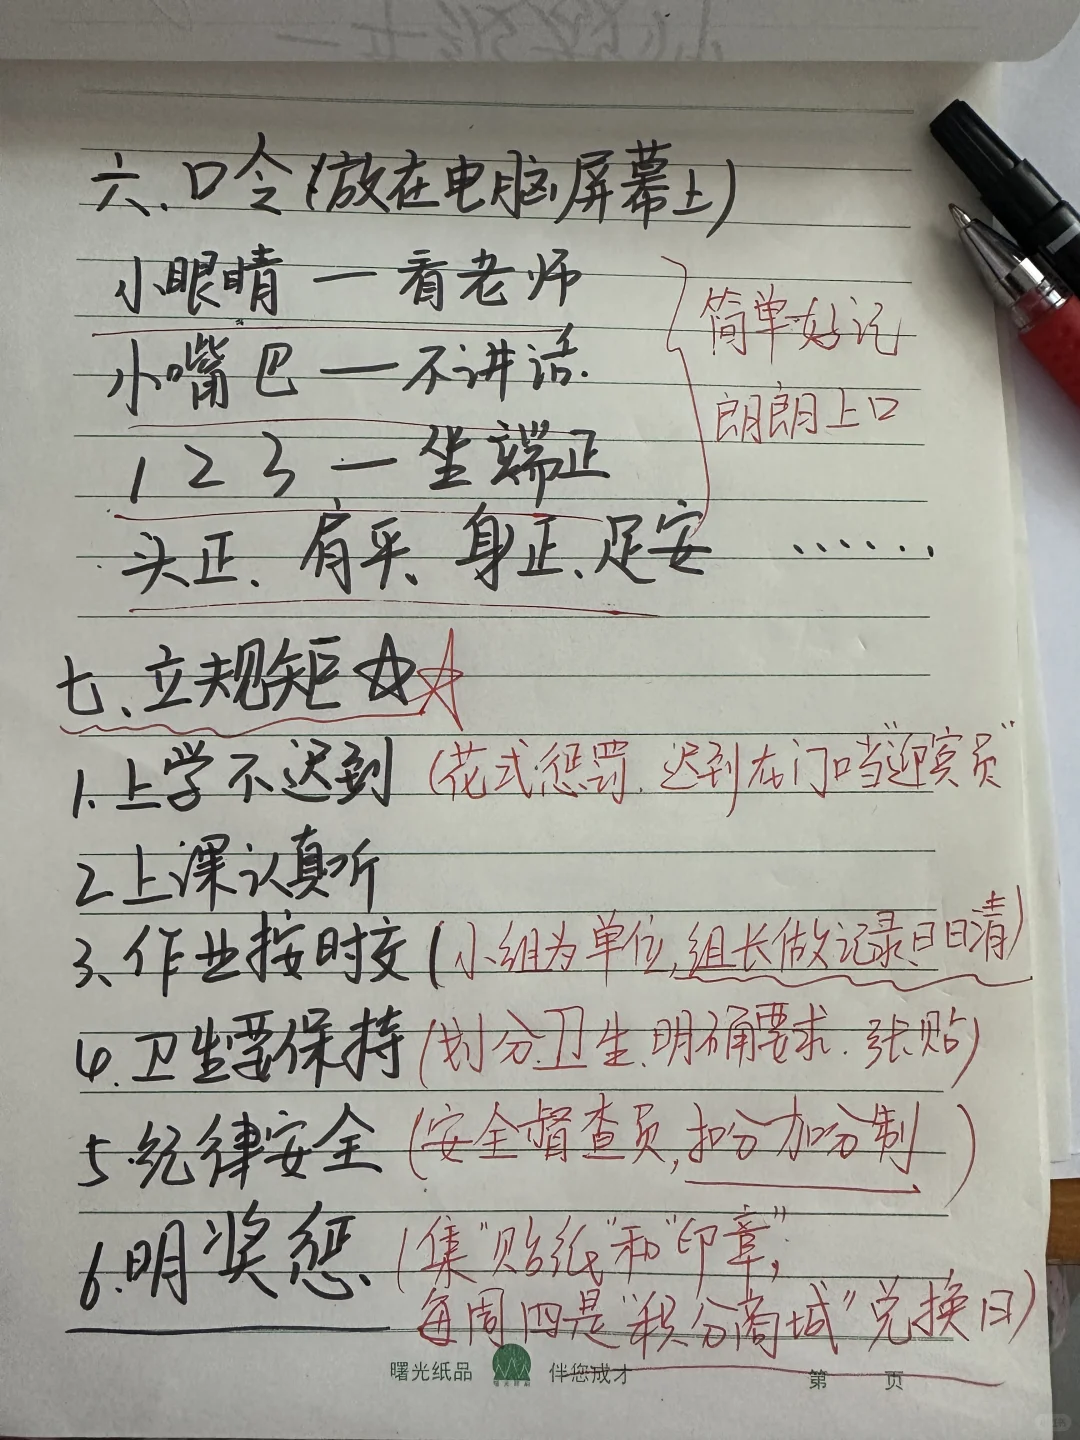 六、口令(放在电脑屏幕上)
小眼睛一看老师
小嘴巴一不讲话.
1 2 3 一坐端正
头正、肩平、身正、足安 ······
简单好记
朗朗上口
七、立规矩☆☆
1.上学不迟到(花式惩罚.迟到在门口当"迎宾员"
2.上课认真听
3、作业按时交(小组为单位,组长做记录、日日清)
4.卫生要保持(划分卫生.明确要求.张贴)
5.纪律安全(安全督查员,扣分加分制)
6.明奖惩.(集"贴纸"和"印章",
每周四是"积分商城"兑换日)
曙光纸品 伴您成才 第 页